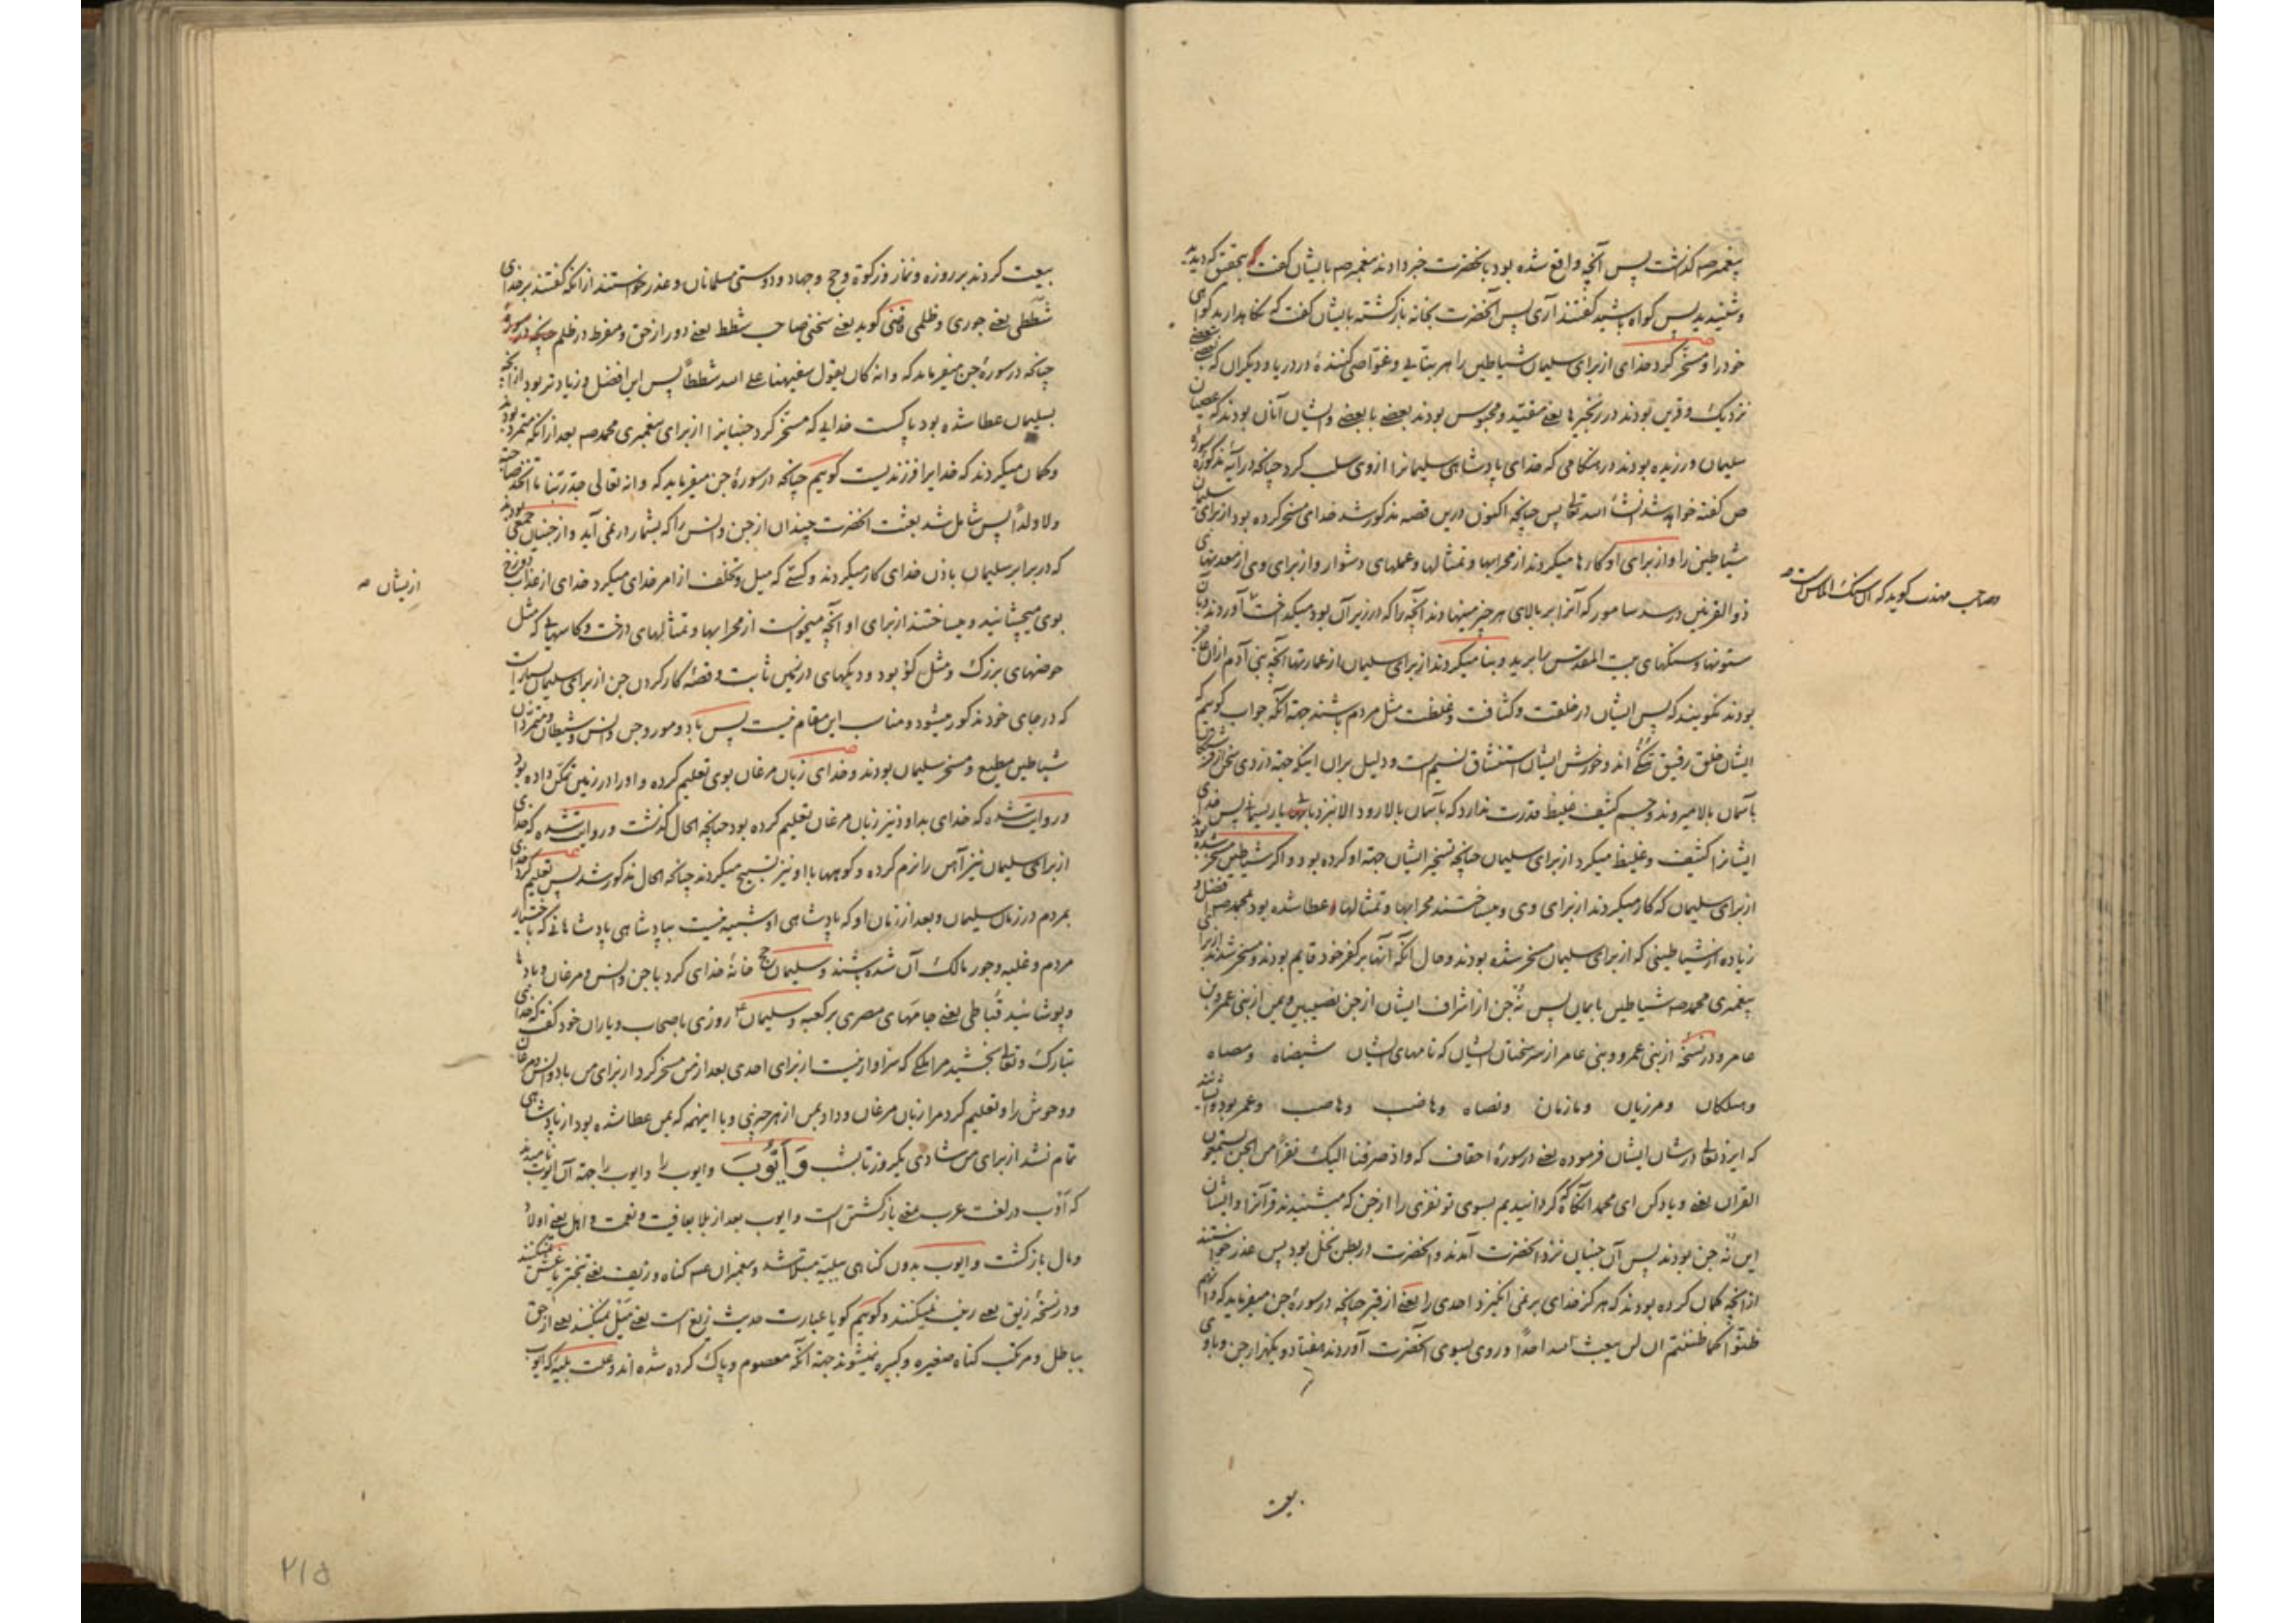 پیغمبر صم گذشت پس آنچه واقع شده بود بآنحضرت خبر دادند پیغمبر صم بایشان گفت که بتحقیق که دیدید
و شنیدید پس گواه باشید گفتند آری پس آنحضرت بخانه بازگشته بایشان گفت که نگاه دارید گواهی
خود را و مسخّر کرد خدای از برای سلیمان شیاطین را هر بنّایی و غوّاصی کننده در دریا و دیگران که بعضی
نزدیک و قرین بودند در زنجیرها یعنی مقیّد و محبوس بودند بعضی با بعضی و ایشان آنان بودند که عصیان
سلیمان ورزیده بودند در هنگامی که خدای پادشاهی سلیمانرا از وی سلب کرد چنانچه در آیهٔ مذکورهٔ سورهٔ
ص گفته خواهد شد انشاء الله تعالی پس چنانچه اکنون درین قصه مذکور شد خدای مسخر کرده بود از برای سلیمان
شیاطین را و از برای او کارها میکردند از محرابها و تمثالها و عملهای دشوار و از برای وی از معدنهای
ذو القرنین در سد سامور که آنرا بر بالای هر چیز مینهادند آنچه را که در زیر آن بود میکداخت آوردند و بآن
ستونها و سنگهای بیت المقدس را برید و بنا میکردند از برای سلیمان از عمارتها آنچه بنی آدم از آن عاجز
بودند نگویند که پس ایشان در خلقت و کثافت و غلظت مثل مردم باشند جهة آنکه جواب گوییم که
ایشان خلق رقیق اند و خورش ایشان استنشاق نسیم است و دلیل بران اینکه جهة دزدی سخن از فرشتگان
بآسمان بالا میروند و جسم کثیف غلیظ قدرت ندارد که بآسمان بالا رود الا بنردبان یا ریسمانی پس خدای
ایشانرا کثیف و غلیظ میکرد از برای سلیمان چنانچه تسخیر ایشان جهة او کرده بود و اگر شیاطین مسخر شده بودند
از برای سلیمان که کار میکردند از برای وی و میساختند محرابها و تمثالها عطا شده بود بمحمد صم فضل و
زیاده از شیاطینی که از برای سلیمان مسخر شده بودند و حال آنکه آنها بر کفر خود قایم بودند و مسخر شدند از برای
پیغمبری محمد صم شیاطین بایمان پس نه جن از اشراف ایشان از جن نصیبین و یمن از بنی عمرو بن
عامر و در نسخه از بنی عمرو و بنی عامر از سرسختان ایشان که نامهای ایشان شیصاه و مصاه
و هملکان و مرزبان و مازنان و نضاه و هاضب و هاصب و عمرو بود و ایشانند
که ایزد تعالی در شان ایشان فرموده یعنی در سورهٔ احقاف که و اذ صرفنا الیک نفراً من الجن یستمعون
القران یعنی و یاد کن ای محمد آنگاه که گردانیدیم بسوی تو نفری را از جن که میشنیدند قرآنرا و ایشان
این نه جن بودند پس آن جنیان نزد آنحضرت آمدند و آنحضرت در بطن نخل بود پس عذر خواستند
از آنچه گمان کرده بودند که هرگز خدای بر نمی انگیزد احدی را یعنی از قبر چنانچه در سورهٔ جن میفرماید که و انهم
ظنّوا کما ظننتم ان لن یبعث الله احداً و روی بسوی آنحضرت آوردند هفتاد و یکهزار جن و با وی
بیعت
و صاحب مهذب گوید که آن سنگ الماس است
بیعت کردند بر روزه و نماز و زکوة و حج و جهاد و دوستی مسلمانان و عذر خواستند از آنکه گفتند بر خدای
شططی یعنی جوری و ظلمی قاضی گوید یعنی سخنی صاحب شطط یعنی دور از حق و مفرط در ظلم
چنانچه در سورهٔ جن میفرماید که و انه کان یقول سفیهنا علی الله شططاً پس این افضل و زیادتر بود از آنچه
بسلیمان عطا شده بود پاکست خدایی که مسخّر کرد جنیانرا از برای پیغمبری محمد صم بعد از آنکه متمرد بودند
و گمان میکردند که خدایرا فرزندیست گوییم چنانچه در سورهٔ جن میفرماید که و انه تعالی جدّ ربّنا ما اتّخذ صاحبة
و لا ولداً پس شامل شد بعثت آنحضرت چندان از جن و انس را که بشمار در نمی آید و از جنیان جمعی بودند
که در برابر سلیمان باذن خدای کار میکردند و کسی که میل و تخلف از امر خدای میکرد خدای از عذاب دوزخ
بوی میچشانید و میساختند از برای او آنچه میخواست از محرابها و تمثالهای درخت و کاسهایی که مثل
حوضهای بزرگ و مثل گو بود و دیگهای در زمین ثابت و قصّهٔ کار کردن جن از برای سلیمان بسیار است
که در جای خود مذکور میشود و مناسب این مقام نیست پس باد و مور و جن و انس و شیطان و متمردان
شیاطین مطیع و مسخر سلیمان بودند و خدای زبان مرغان بوی تعلیم کرده و او را در زمین تمکّن داده بود
و روایت شده که خدای بداود نیز زبان مرغان تعلیم کرده بود چنانچه الحال گذشت و روایت شده که خدای
از برای سلیمان نیز آهن را نرم کرده و کوهها با او نیز تسبیح میکردند چنانچه الحال مذکور شد پس تعلیم کرد خدای
بمردم در زمان سلیمان و بعد از زمان او که پادشاهی او شبیه نیست بپادشاهی پادشاهانی که باختیار
مردم و غلبه و جور مالک آن شده باشند و سلیمان حج خانهٔ خدای کرد با جن و انس و مرغان و بادها
و پوشانید قباطی یعنی جامهای مصری بر کعبه و سلیمان ع روزی باصحاب و یاران خود گفت که خدای
تبارک و تعالی بخشید مرا ملکی که سزاوار نیست از برای احدی بعد از من مسخر کرد از برای من باد و انس و جن و مرغان
و وحوش را و تعلیم کرد مرا زبان مرغان و داد بمن از هر چیزی و با اینهمه که بمن عطا شده بود از پادشاهی
تمام نشد از برای من شادی یکروز تا بشب وَ اَیُّوبَ و ایوب را و ایوب را جهة آن ایوب نامیدند
که اَوْب در لغت عرب بمعنی بازگشتن است و ایوب بعد از بلا بعافیت و نعمت و اهل یعنی اولاد
و مال بازگشت و ایوب بدون گناهی ببلیّه مبتلا شد و پیغمبران عم گناه و زیف یعنی تبختر یا غش نمیکنند
و در نسخهٔ زیق یعنی نمیکنند و گوییم گویا عبارت حدیث زیغ است یعنی میل نمیکنند یعنی از حق
بباطل و مرتکب گناه صغیره و کبیره نمیشوند جهة آنکه معصوم و پاک کرده شده اند و علت بلیه که ایوب
ازیشان صم
۲۱۵